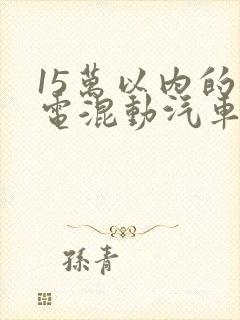 15萬以內的
電混動汽車
孫青